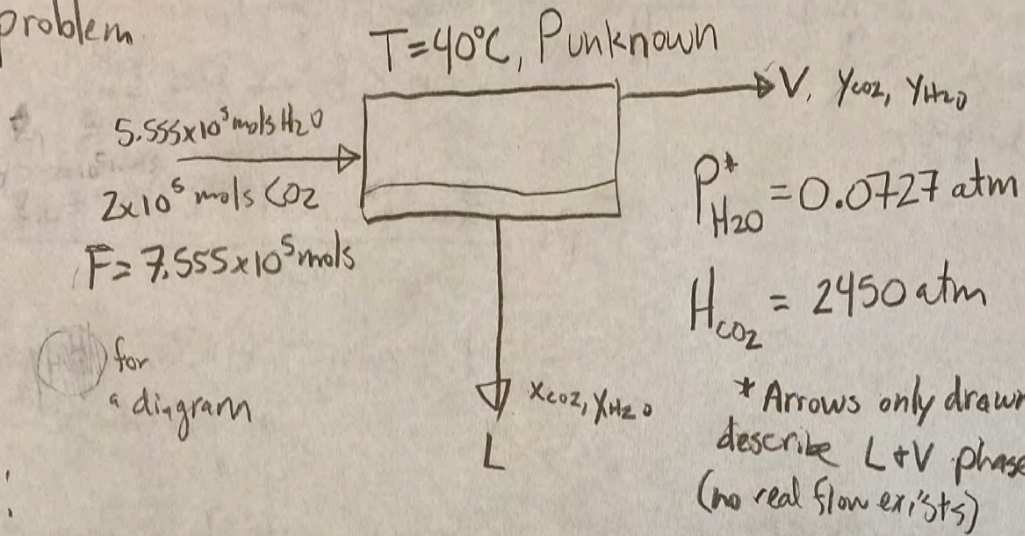 problem
T=40°C, Punknown
5.555x10⁵mols H₂O
2x10⁵ mols CO2
F= 7.555x10⁵mols
V, yco2, yH2O
P*H2O = 0.0727 atm
Hco2 = 2450 atm
for
a diagram
xco2, xH2O
L
* Arrows only drawn
describe L+V phase
(no real flow exists)